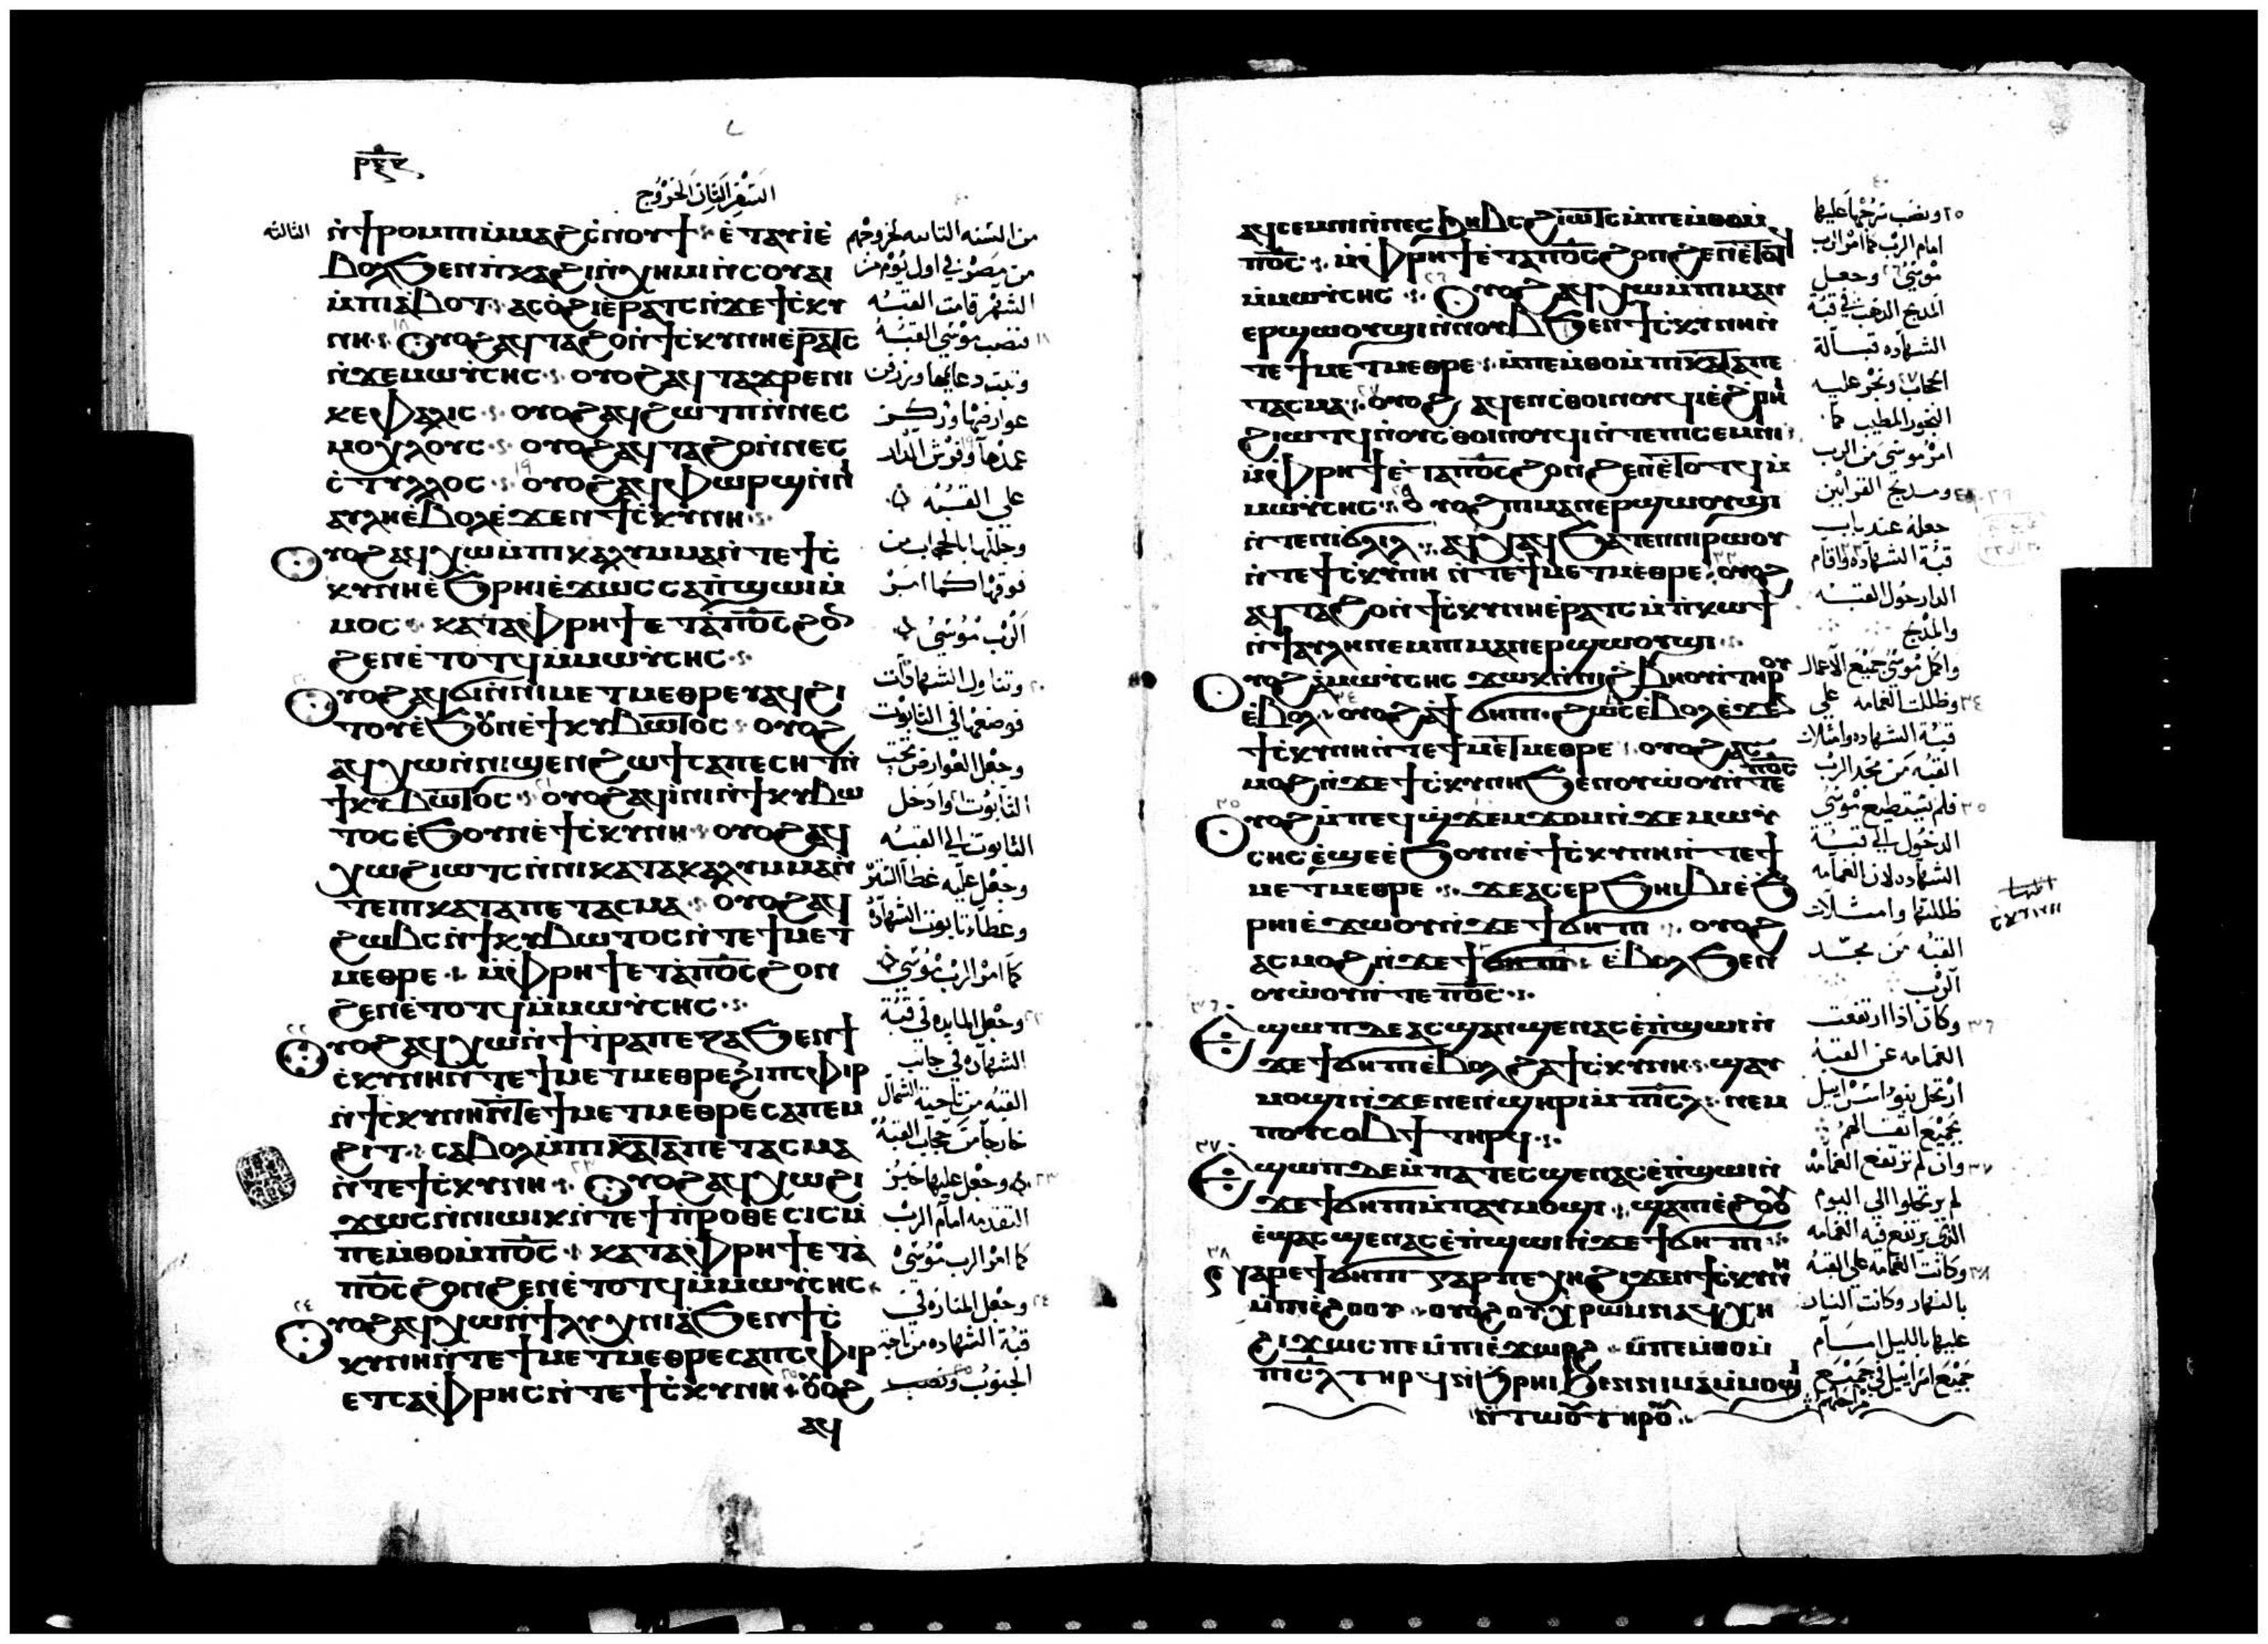 السفر الثانى الخروج
ⲛ̀ϯⲣⲟⲙⲡⲓ ⲙ̀ⲙⲁϩⲥ̀ⲛⲟⲩϯ ⲉ̀ⲧⲁⲩⲓ̀ⲉ̀
ⲃⲟⲗϧⲉⲛⲡ̀ⲕⲁϩⲓ ⲛ̀ⲭⲏⲙⲓ ⲛ̀ⲥⲟⲩⲁⲓ
ⲙ̀ⲡⲓⲁ̀ⲃⲟⲧ ⲁⲥⲟ̀ϩⲓⲉ̀ⲣⲁⲧⲥ ⲛ̀ϫⲉϯⲥ̀ⲕⲩ
ⲛⲏ ⲟⲩⲟϩ ⲁϥⲧⲁϩⲟ ⲛ̀ϯⲥ̀ⲕⲩⲛⲏ ⲉ̀ⲣⲁⲧⲥ
ⲛ̀ϫⲉⲙⲱⲩ̀ⲥⲏⲥ ⲟⲩⲟϩ ⲁϥⲧⲁϫⲣⲉⲛⲓ
ⲕⲉⲫⲁⲗⲓⲥ ⲟⲩⲟϩ ⲁϥϩⲱⲧⲡ ⲛ̀ⲛⲉⲥ
ⲙⲟⲭⲗⲟⲩⲥ ⲟⲩⲟϩ ⲁϥⲧⲁϩⲟ ⲛ̀ⲛⲉⲥ
ⲥ̀ⲧⲩⲗⲗⲟⲥ ⲟⲩⲟϩ ⲁϥⲫⲱⲣϣ ⲛ̀ⲛⲓ
ⲁⲩⲗⲏ ⲉ̀ⲃⲟⲗ ⲉ̀ϫⲉⲛϯⲥ̀ⲕⲩⲛⲏ
ⲟⲩⲟϩ ⲁϥⲭⲱ ⲙ̀ⲡⲓⲕⲁⲗⲩⲙⲙⲁ ⲛ̀ⲧⲉϯⲥ̀
ⲕⲩⲛⲏ ⲉ̀ϧⲣⲏⲓ ⲉ̀ϫⲱⲥ ⲥⲁⲡ̀ϣⲱⲓ ⲙ̀
ⲙⲟⲥ ⲕⲁⲧⲁⲫ̀ⲣⲏϯ ⲉⲧⲁⲡⲟ̅ⲥ̅ ϩⲟⲛ
ϩⲉⲛ ⲉ̀ⲧⲟⲧϥ ⲙ̀ⲙⲱⲩ̀ⲥⲏⲥ
ⲟⲩⲟϩ ⲁϥϭⲓ ⲛ̀ⲛⲓⲙⲉⲧⲙⲉⲑⲣⲉⲩ ⲁϥϩⲓ
ⲧⲟⲩ ⲉ̀ϧⲟⲩⲛ ⲉ̀ϯⲕⲩⲃⲱⲧⲟⲥ ⲟⲩⲟϩ
ⲁϥⲭⲱ ⲛ̀ⲛⲓϣⲉⲛϩⲱϯ ⲥⲁⲡⲉⲥⲏⲧ ⲛ̀
ϯⲕⲩⲃⲱⲧⲟⲥ ⲟⲩⲟϩ ⲁϥⲓ̀ⲛⲓ ⲛ̀ϯⲕⲩⲃⲱ
ⲧⲟⲥ ⲉ̀ϧⲟⲩⲛ ⲉ̀ϯⲥ̀ⲕⲩⲛⲏ ⲟⲩⲟϩ ⲁϥ
ⲭⲱ ϩⲓⲱⲧⲥ ⲛ̀ⲛⲓⲕⲁⲧⲁⲕⲁⲗⲩⲙⲙⲁ ⲛ̀
ⲧⲉⲡⲓⲕⲁⲧⲁⲡⲉⲧⲁⲥⲙⲁ ⲟⲩⲟϩ ⲁϥ
ϩⲱⲃⲥ ⲛ̀ϯⲕⲩⲃⲱⲧⲟⲥ ⲛ̀ⲧⲉϯⲙⲉⲧ
ⲙⲉⲑⲣⲉ ⲙ̀ⲫ̀ⲣⲏϯ ⲉⲧⲁⲡⲟ̅ⲥ̅ ϩⲟⲛ
ϩⲉⲛ ⲉ̀ⲧⲟⲧϥ ⲙ̀ⲙⲱⲩ̀ⲥⲏⲥ
ⲟⲩⲟϩ ⲁϥⲭⲱ ⲛ̀ϯⲧ̀ⲣⲁⲡⲉⲍⲁ ϧⲉⲛϯ
ⲥ̀ⲕⲩⲛⲏ ⲛ̀ⲧⲉϯⲙⲉⲧⲙⲉⲑⲣⲉ ϩⲓⲡⲥ̀ⲫⲓⲣ
ⲛ̀ϯⲥ̀ⲕⲩⲛⲏ ⲛ̀ⲧⲉϯⲙⲉⲧⲙⲉⲑⲣⲉ ⲥⲁⲡⲉⲙ
ϩⲓⲧ ⲥⲁⲃⲟⲗ ⲙ̀ⲡⲓⲕⲁⲧⲁⲡⲉⲧⲁⲥⲙⲁ
ⲛ̀ⲧⲉϯⲥ̀ⲕⲩⲛⲏ ⲟⲩⲟϩ ⲁϥⲭⲱ ϩⲓ
ϫⲱⲥ ⲛ̀ⲛⲓⲱⲓⲕ ⲛ̀ⲧⲉϯⲡ̀ⲣⲟⲑⲉⲥⲓⲥ ⲙ̀
ⲡⲉⲙ̀ⲑⲟ ⲙ̀ⲡⲟ̅ⲥ̅ ⲕⲁⲧⲁⲫ̀ⲣⲏϯ ⲉⲧⲁ
ⲡⲟ̅ⲥ̅ ϩⲟⲛϩⲉⲛ ⲉ̀ⲧⲟⲧϥ ⲙ̀ⲙⲱⲩ̀ⲥⲏⲥ
ⲟⲩⲟϩ ⲁϥⲭⲱ ⲛ̀ϯⲗⲩⲭⲛⲓⲁ̀ ϧⲉⲛϯⲥ̀
ⲕⲩⲛⲏ ⲛ̀ⲧⲉϯⲙⲉⲧⲙⲉⲑⲣⲉ ⲥⲁⲡⲥ̀ⲫⲓⲣ
ⲉⲧⲥⲁⲫ̀ⲣⲏⲥ ⲛ̀ⲧⲉϯⲥ̀ⲕⲩⲛⲏ ⲟⲩⲟϩ
ⲁϥ
الثالثه
من السنه الثانيه لخروجهم
من مصر فى اول يوم من
الشهر قامت القبه
فنصب موسى القبه
وثبت دعايمها وزرفن
عوارضها وركز
عمدها وفرش الدار
على القبه
وجللها بالحجاب من
فوقها كما امر
الرب موسى
وتناول الشهادات
فوضعها فى التابوت
وجعل العوارض تحت
التابوت وادخل
التابوت الى القبه
وجعل عليه غطا الستر
وغطا تابوت الشهاده
كما امر الرب موسى
وجعل المايده فى قبة
الشهاده فى جانب
القبه من ناحية الشمال
خارجا من حجاب القبه
وجعل عليها خبز
التقدمه امام الرب
كما امر الرب موسى
وجعل المناره فى
قبة الشهاده من ناحية
الجنوب ونصب
ⲁϥⲥⲉⲙⲛⲓ ⲛ̀ⲛⲉⲥϧⲏⲃⲥ ϩⲓⲱⲧⲥ ⲙ̀ⲡⲉⲙ̀ⲑⲟ ⲙ̀
ⲡⲟ̅ⲥ̅ ⲙ̀ⲫ̀ⲣⲏϯ ⲉ̀ⲧⲁⲡⲟ̅ⲥ̅ ϩⲟⲛϩⲉⲛ ⲉ̀ⲧⲟⲧϥ
ⲙ̀ⲙⲱⲩ̀ⲥⲏⲥ ⲟⲩⲟϩ ⲁϥⲭⲱ ⲙ̀ⲡⲓⲙⲁⲛ
ⲉⲣϣⲱⲟⲩϣⲓ ⲛ̀ⲛⲟⲩⲃ ϧⲉⲛϯⲥ̀ⲕⲩⲛⲏ ⲛ̀
ⲧⲉϯⲙⲉⲧⲙⲉⲑⲣⲉ ⲙ̀ⲡⲉⲙ̀ⲑⲟ ⲙ̀ⲡⲓⲕⲁⲧⲁⲡⲉ
ⲧⲁⲥⲙⲁ ⲟⲩⲟϩ ⲁϥⲉⲛⲥ̀ⲑⲟⲓⲛⲟⲩϥⲓ ⲉ̀ϩ̀ⲣⲏⲓ
ϩⲓⲱⲧϥ ⲛ̀ⲟⲩⲥ̀ⲑⲟⲓⲛⲟⲩϥⲓ ⲛ̀ⲧⲉⲡⲓⲥⲉⲙⲛⲓ
ⲙ̀ⲫ̀ⲣⲏϯ ⲉ̀ⲧⲁⲡⲟ̅ⲥ̅ ϩⲟⲛϩⲉⲛ ⲉ̀ⲧⲟⲧϥ ⲙ̀
ⲙⲱⲩ̀ⲥⲏⲥ ⲟⲩⲟϩ ⲡⲓⲙⲁⲛⲉⲣϣⲱⲟⲩϣⲓ
ⲛ̀ⲧⲉⲛⲓϭⲗⲓⲗ ⲁϥⲭⲁϥ ϧⲁⲧⲉⲛⲛⲓⲣⲱⲟⲩ
ⲛ̀ⲧⲉϯⲥ̀ⲕⲩⲛⲏ ⲛ̀ⲧⲉϯⲙⲉⲧⲙⲉⲑⲣⲉ ⲟⲩⲟϩ
ⲁϥⲧⲁϩⲟ ⲛ̀ϯⲥ̀ⲕⲩⲛⲏ ⲉ̀ⲣⲁⲧⲥ ⲙ̀ⲡ̀ⲕⲱϯ
ⲛ̀ϯⲁⲩⲗⲏ ⲛⲉⲙ ⲡⲓⲙⲁⲛⲉⲣϣⲱⲟⲩϣⲓ
ⲟⲩⲟϩ ⲁ̀ⲙⲱⲩ̀ⲥⲏⲥ ϫⲱⲕ ⲛ̀ⲛⲓϩ̀ⲃⲏⲟⲩⲓ̀ ⲧⲏⲣⲟⲩ
ⲉ̀ⲃⲟⲗ ⲟⲩⲟϩ ⲁ̀ϯϭⲏⲡⲓ ϩⲱⲃⲥ ⲉ̀ⲃⲟⲗ ⲉ̀ϫⲉⲛ
ϯⲥ̀ⲕⲩⲛⲏ ⲛ̀ⲧⲉϯⲙⲉⲧⲙⲉⲑⲣⲉ ⲟⲩⲟϩ ⲁⲥ
ⲙⲟϩ ⲛ̀ϫⲉϯⲥ̀ⲕⲩⲛⲏ ϧⲉⲛⲟⲩⲱ̀ⲟⲩ ⲛ̀ⲧⲉⲡⲟ̅ⲥ̅
ⲟⲩⲟϩ ⲙ̀ⲡⲉϥϣ̀ϫⲉⲙϫⲟⲙ ⲛ̀ϫⲉⲙⲱⲩ̀
ⲥⲏⲥ ⲉ̀ϣⲉ ⲉ̀ϧⲟⲩⲛ ⲉ̀ϯⲥ̀ⲕⲩⲛⲏ ⲛ̀ⲧⲉϯ
ⲙⲉⲧⲙⲉⲑⲣⲉ ϫⲉ ⲁⲥⲉⲣϧⲏⲓⲃⲓ ⲉ̀ϧ
ⲣⲏⲓ ⲉ̀ϫⲱⲟⲩ ⲛ̀ϫⲉϯϭⲏⲡⲓ ⲟⲩⲟϩ
ⲁⲥⲙⲟϩ ⲛ̀ϫⲉϯϭⲏⲡⲓ ⲉ̀ⲃⲟⲗϧⲉⲛ
ⲟⲩⲱ̀ⲟⲩ ⲛ̀ⲧⲉⲡⲟ̅ⲥ̅
ⲉϣⲱⲡ ⲇⲉ ⲁⲥϣⲁⲛϣⲉⲛⲁⲥ ⲉ̀ⲡ̀ϣⲱⲓ ⲛ̀
ϫⲉϯϭⲏⲡⲓ ⲉ̀ⲃⲟⲗϩⲁϯⲥ̀ⲕⲩⲛⲏ ϣⲁⲩ
ⲙⲟϣⲓ ⲛ̀ϫⲉⲛⲉⲛϣⲏⲣⲓ ⲙ̀ⲡⲓⲥ̅ⲗ̅ ⲛⲉⲙ
ⲡⲟⲩⲥⲟⲃϯ ⲧⲏⲣϥ
ⲉϣⲱⲡ ⲇⲉ ⲙ̀ⲡⲁⲧⲉⲥϣⲉⲛⲁⲥ ⲉ̀ⲡ̀ϣⲱⲓ ⲛ̀
ϫⲉϯϭⲏⲡⲓ ⲙ̀ⲡⲁⲩⲙⲟϣⲓ ϣⲁⲡⲓⲉ̀ϩⲟⲟⲩ
ⲉ̀ϣⲁⲥϣⲉⲛⲁⲥ ⲉ̀ⲡ̀ϣⲱⲓ ⲛ̀ϫⲉϯϭⲏⲡⲓ
ⲛⲁⲣⲉϯϭⲏⲡⲓ ⲅⲁⲣ ⲡⲉ ⲭⲏ ϩⲓϫⲉⲛϯⲥ̀ⲕⲩⲛⲏ
ⲙ̀ⲡⲓⲉ̀ϩⲟⲟⲩ ⲟⲩⲟϩ ⲟⲩⲭ̀ⲣⲱⲙ ⲛⲁϥⲭⲏ
ϩⲓϫⲱⲥ ⲡⲉ ⲙ̀ⲡⲓⲉ̀ϫⲱⲣϩ ⲙ̀ⲡⲉⲙ̀ⲑⲟ ⲙ̀
ⲡⲓⲥ̅ⲗ̅ ⲧⲏⲣϥ ⲛ̀ϧ̀ⲣⲏⲓ ϧⲉⲛⲛⲓⲙⲁⲙ̀ⲙⲟϣⲓ
ⲛ̀ⲧⲱⲟⲩ ⲧⲏⲣⲟⲩ
٢٥ ونصب سرجها عليها
امام الرب كما امر الرب
موسى وجعل
المذبح الذهب فى قبة
الشهاده قبالة
الحجاب وبخر عليه
البخور المطيب كما
امر موسى من الرب
ومذبح القرابين
جعله عند باب
قبة الشهاده واقام
الدار حول القبه
والمذبح
واكمل موسى جميع الاعمال
٣٤ وظللت الغمامه على
قبة الشهاده وامتلات
القبه من مجد الرب
٣٥ فلم يستطيع موسى
الدخول الى قبة
الشهاده لان الغمامه
ظللتها وامتلات
القبه من مجد
الرب
٣٦ وكان اذا ارتفعت
الغمامه عن القبه
ارتحل بنو اسراييل
بجميع اثقالهم
٣٧ وان لم ترتفع الغمامه
لم يرتحلوا الى اليوم
الذى يرتفع فيه الغمامه
٣٨ وكانت الغمامه على القبه
بالنهار وكانت النار
عليها بالليل امام
جميع اسراييل فى جميع
مراحلهم